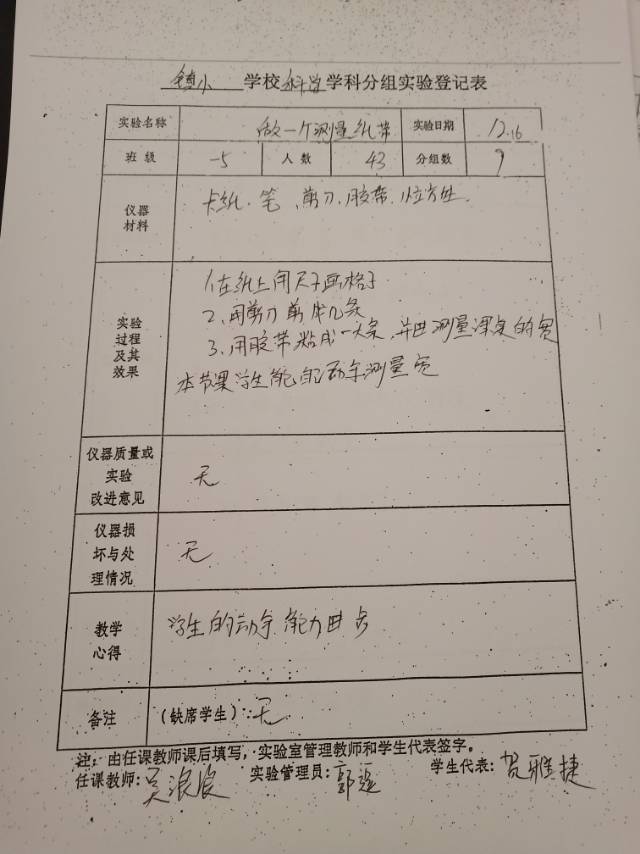 镇小 学校 科学 学科分组实验登记表
实验名称 做一个测量纸带 实验日期 12.16
班 级 一5 人 数 43 分组数 9
仪器
材料
卡纸、笔、剪刀、胶带、小立方体
实验
过程
及其
效果
1、在纸上用尺子画格子
2、用剪刀剪成几条
3、用胶带粘成一大条,并且测量课桌的宽
本节课学生能动手测量宽
仪器质量或
实验
改进意见
无
仪器损
坏与处
理情况
无
教学
心得
学生的动手能力
备注
(缺席学生):无
注:由任课教师课后填写,实验室管理教师和学生代表签字。
任课教师:吴浪浪 实验管理员:郭 学生代表:贺雅捷